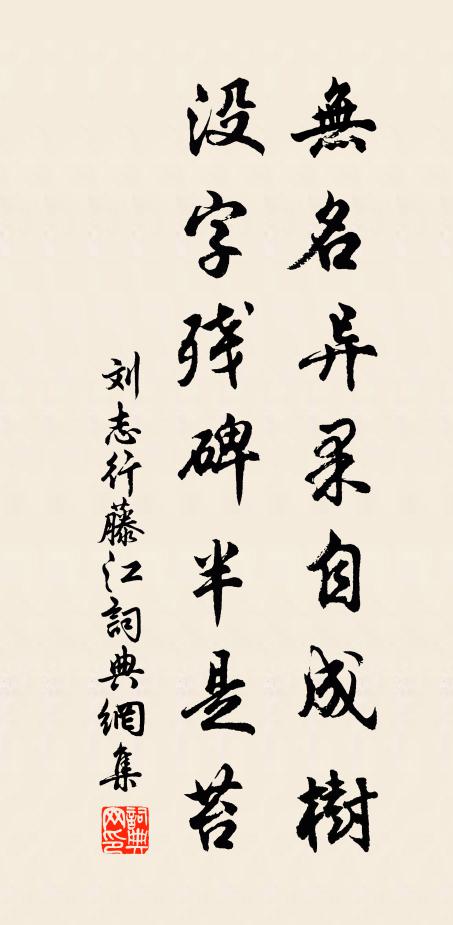 無名异果自成樹
没字残碑半是苔
刘志行藤江詞典網集
詞典網印